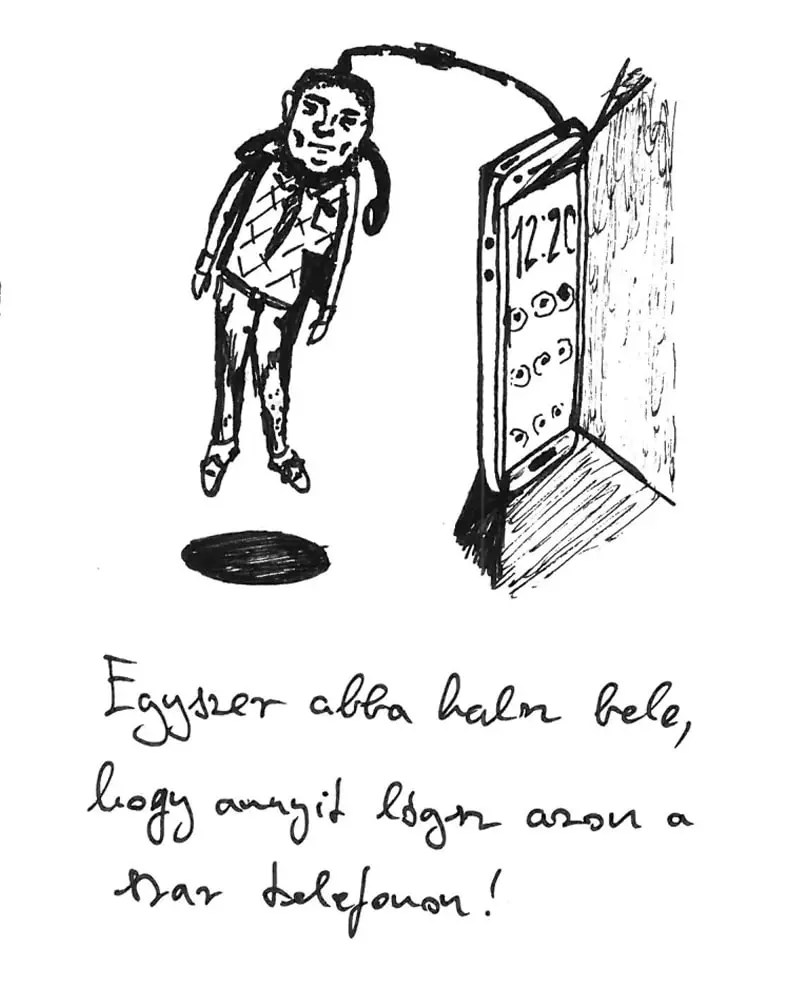 12:20
Egyszer abba halsz bele,
hogy annyit lógsz azon a
szar telefonon!